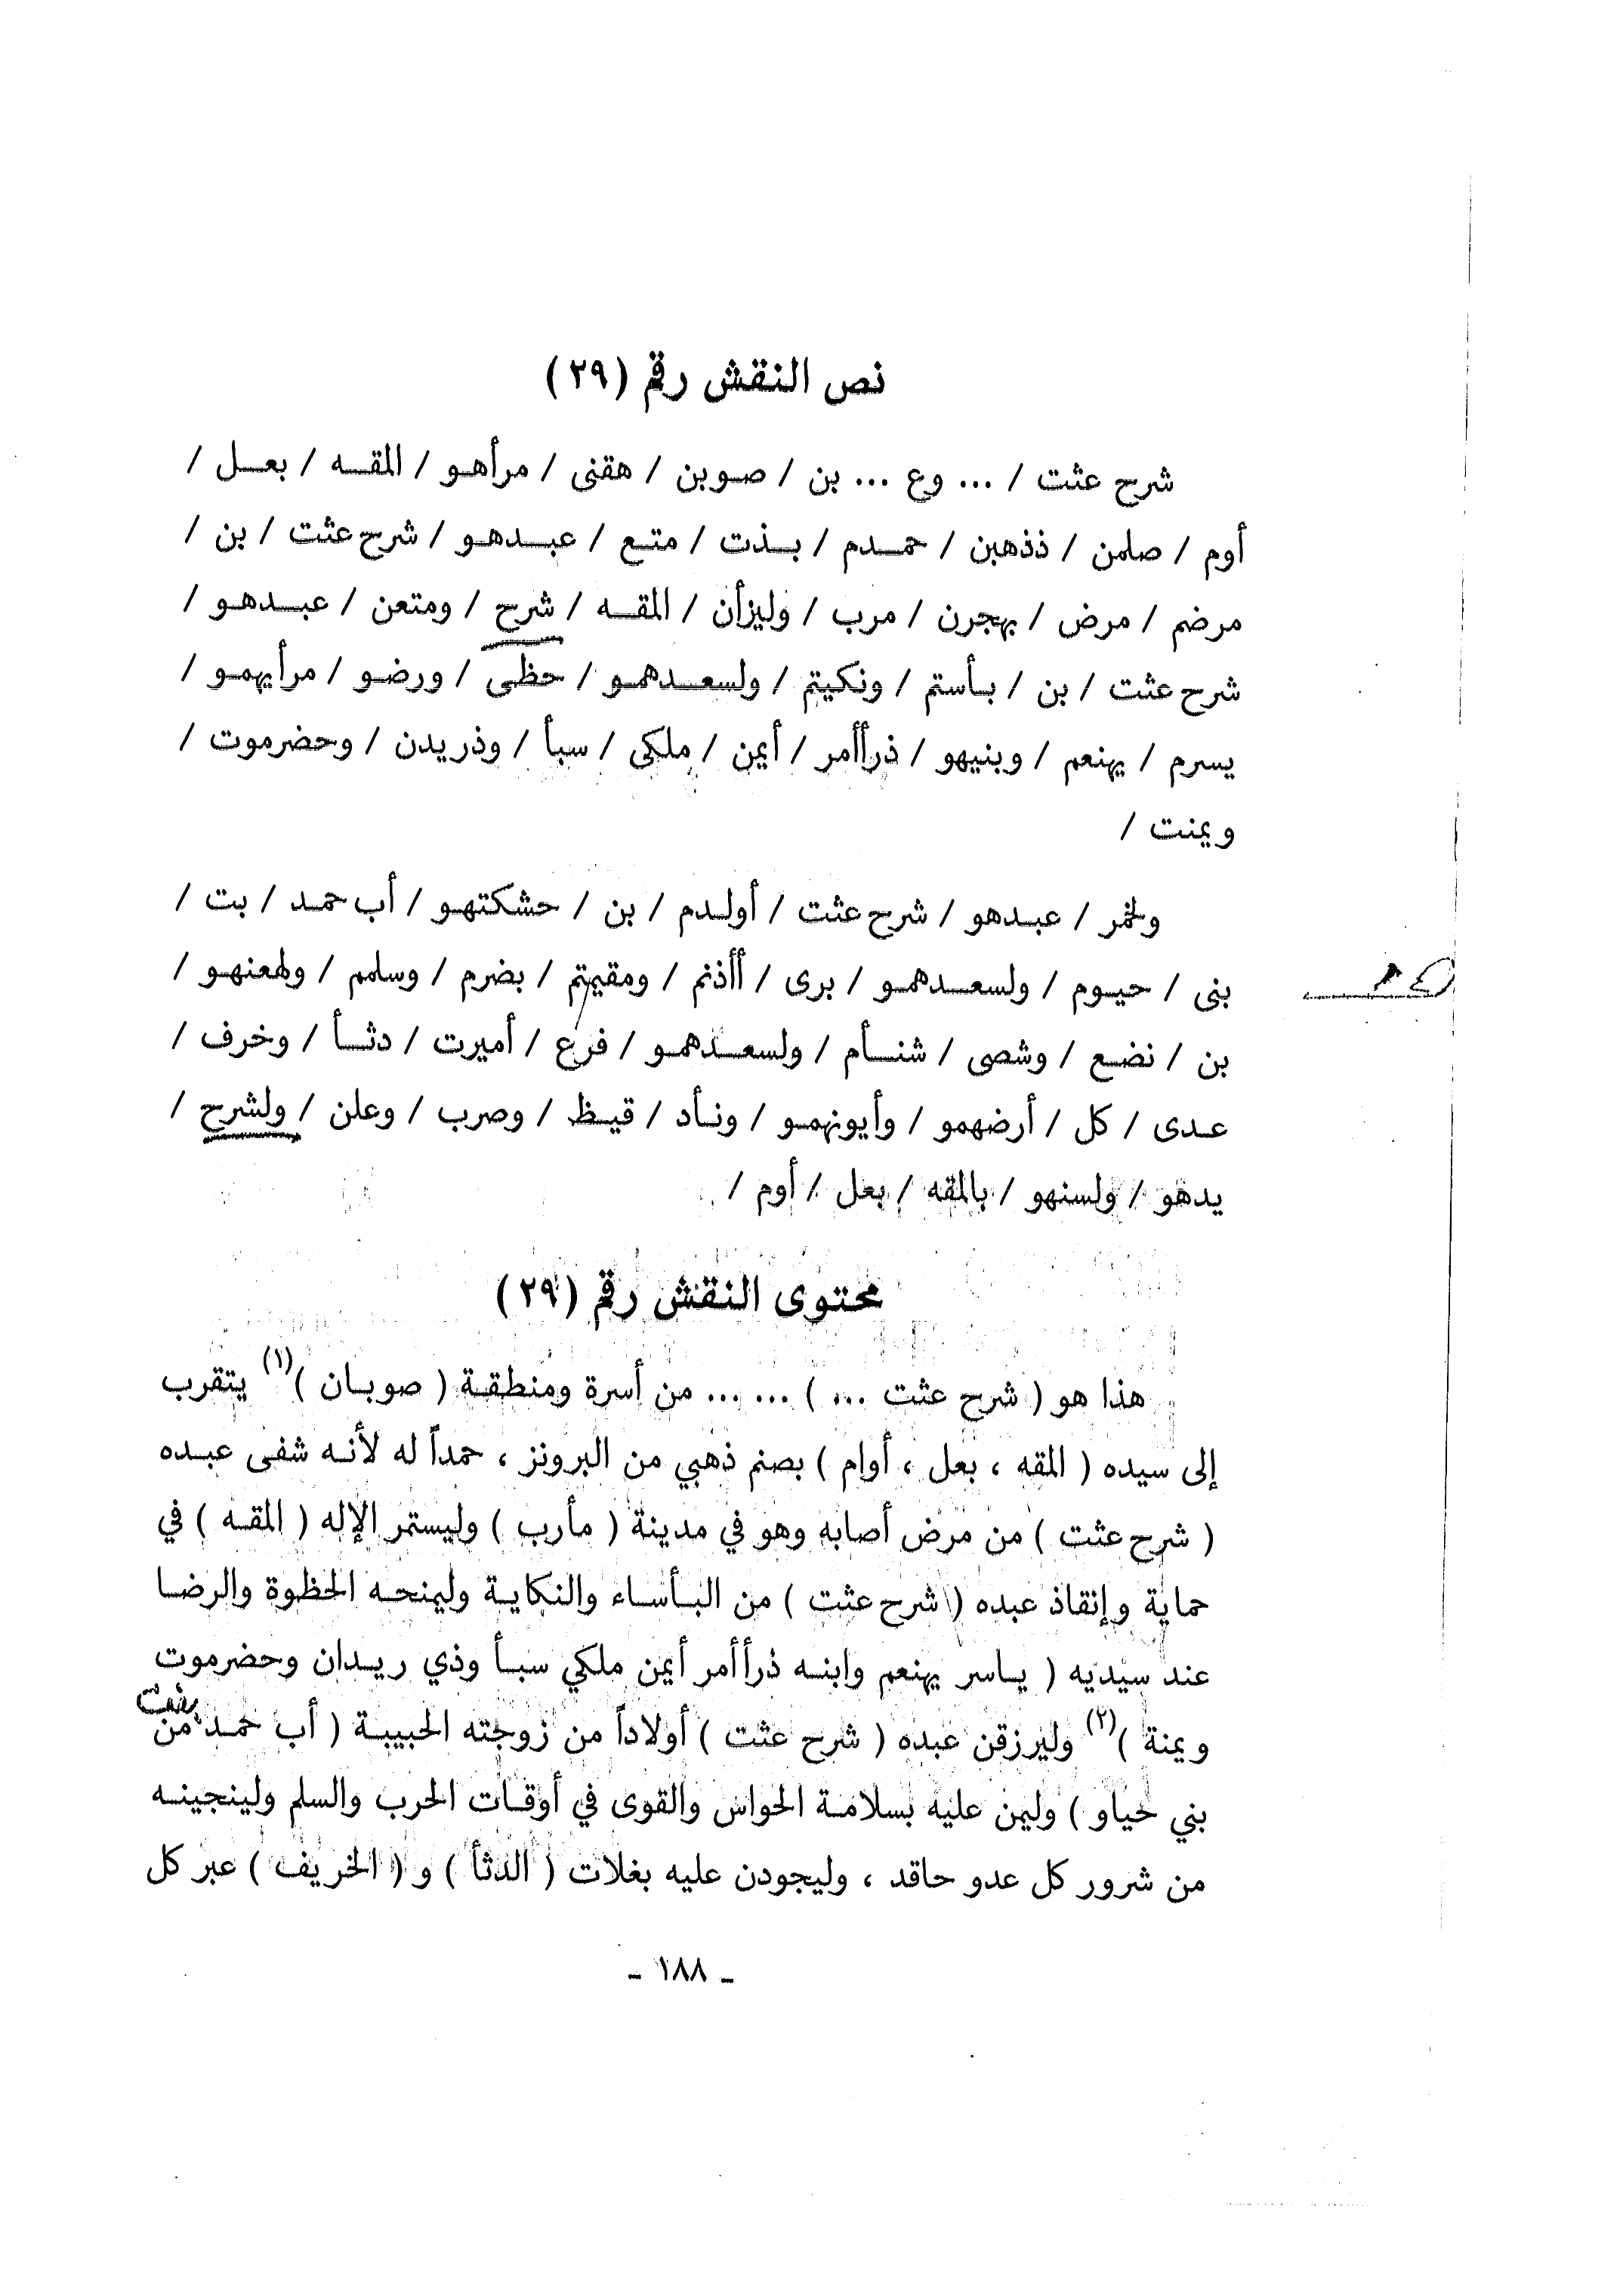 نص النقش رقم (٢٩)
شرح عثت / ... وع ... بن / صوبن / هقنى / مرأهو / المقه / بعل /
أوم / صلمن / ذذهبن / حمدم / بذت / متع / عبدهو / شرح عثت / بن /
مرضم / مرض / بهجرن / مرب / وليزأن / المقه / شرح / ومتعن / عبدهو /
شرح عثت / بن / بأستم / ونكيتم / ولسعدهمو / حظى / ورضو / مرأيهمو /
يسرم / يهنعم / وبنيهو / ذرأأمر / أيمن / ملكى / سبأ / وذريدن / وحضرموت /
ويمنت /
ولخمر / عبدهو / شرح عثت / أولدم / بن / حشكتهو / أب حمد / بت /
بنى / حيوم / ولسعدهمو / برى / أأذنم / ومقيمتم / بضرم / وسلمم / ولهعنهو /
بن / نضع / وشصى / شنأم / ولسعدهمو / فرع / أميرت / دثأ / وخرف /
عدى / كل / أرضهمو / وأيونهمو / ونأد / قيظ / وصرب / وعلن / ولشرح /
يدهو / ولسنهو / بالمقه / بعل / أوم /
محتوى النقش رقم (٢٩)
هذا هو ( شرح عثت ... ) ... ... من أسرة ومنطقة ( صوبان )(١) يتقرب
إلى سيده ( المقه ، بعل ، أوام ) بصنم ذهبي من البرونز ، حمداً له لأنه شفى عبده
( شرح عثت ) من مرض أصابه وهو في مدينة ( مأرب ) وليستمر الإله ( المقه ) في
حماية وإنقاذ عبده ( شرح عثت ) من البأساء والنكاية وليمنحه الحظوة والرضا
عند سيديه ( ياسر يهنعم وابنه ذرأأمر أيمن ملكي سبأ وذي ريدان وحضرموت
ويمنة )(٢) وليرزقن عبده ( شرح عثت ) أولاداً من زوجته الحبيبة ( أب حمد من بنت
بني حياو ) وليمن عليه بسلامة الحواس والقوى في أوقات الحرب والسلم ولينجينه
من شرور كل عدو حاقد ، وليجودن عليه بغلات ( الدثأ ) و ( الخريف ) عبر كل
- ١٨٨ -